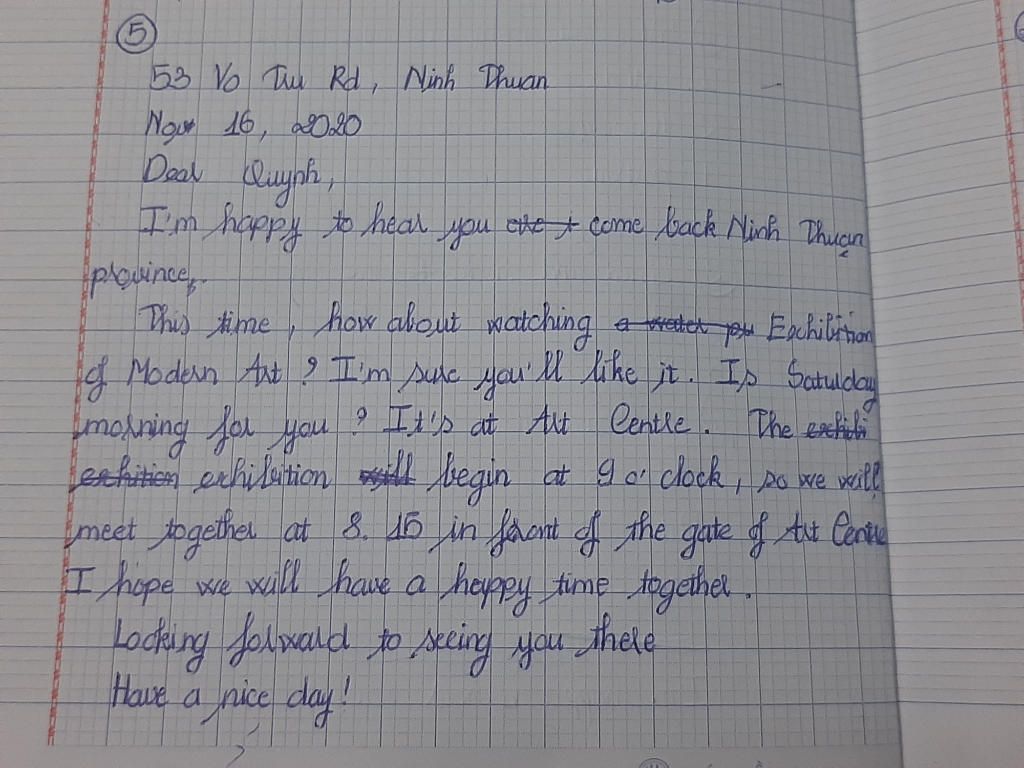 5
53 Vo Tru Rd, Ninh Thuan
Nov 16, 2020
Dear Quynh,
I'm happy to hear you come back Ninh Thuan
province.
This time, how about watching a water pu Exhibition
of Modern Art? I'm sure you'll like it. Is Saturday
morning for you? It's at Art Centre. The exhibi
exhition exhibition will begin at 9 o'clock, so we will
meet together at 8.15 in front of the gate of Art Centre
I hope we will have a happy time together.
Looking forward to seeing you there
Have a nice day!